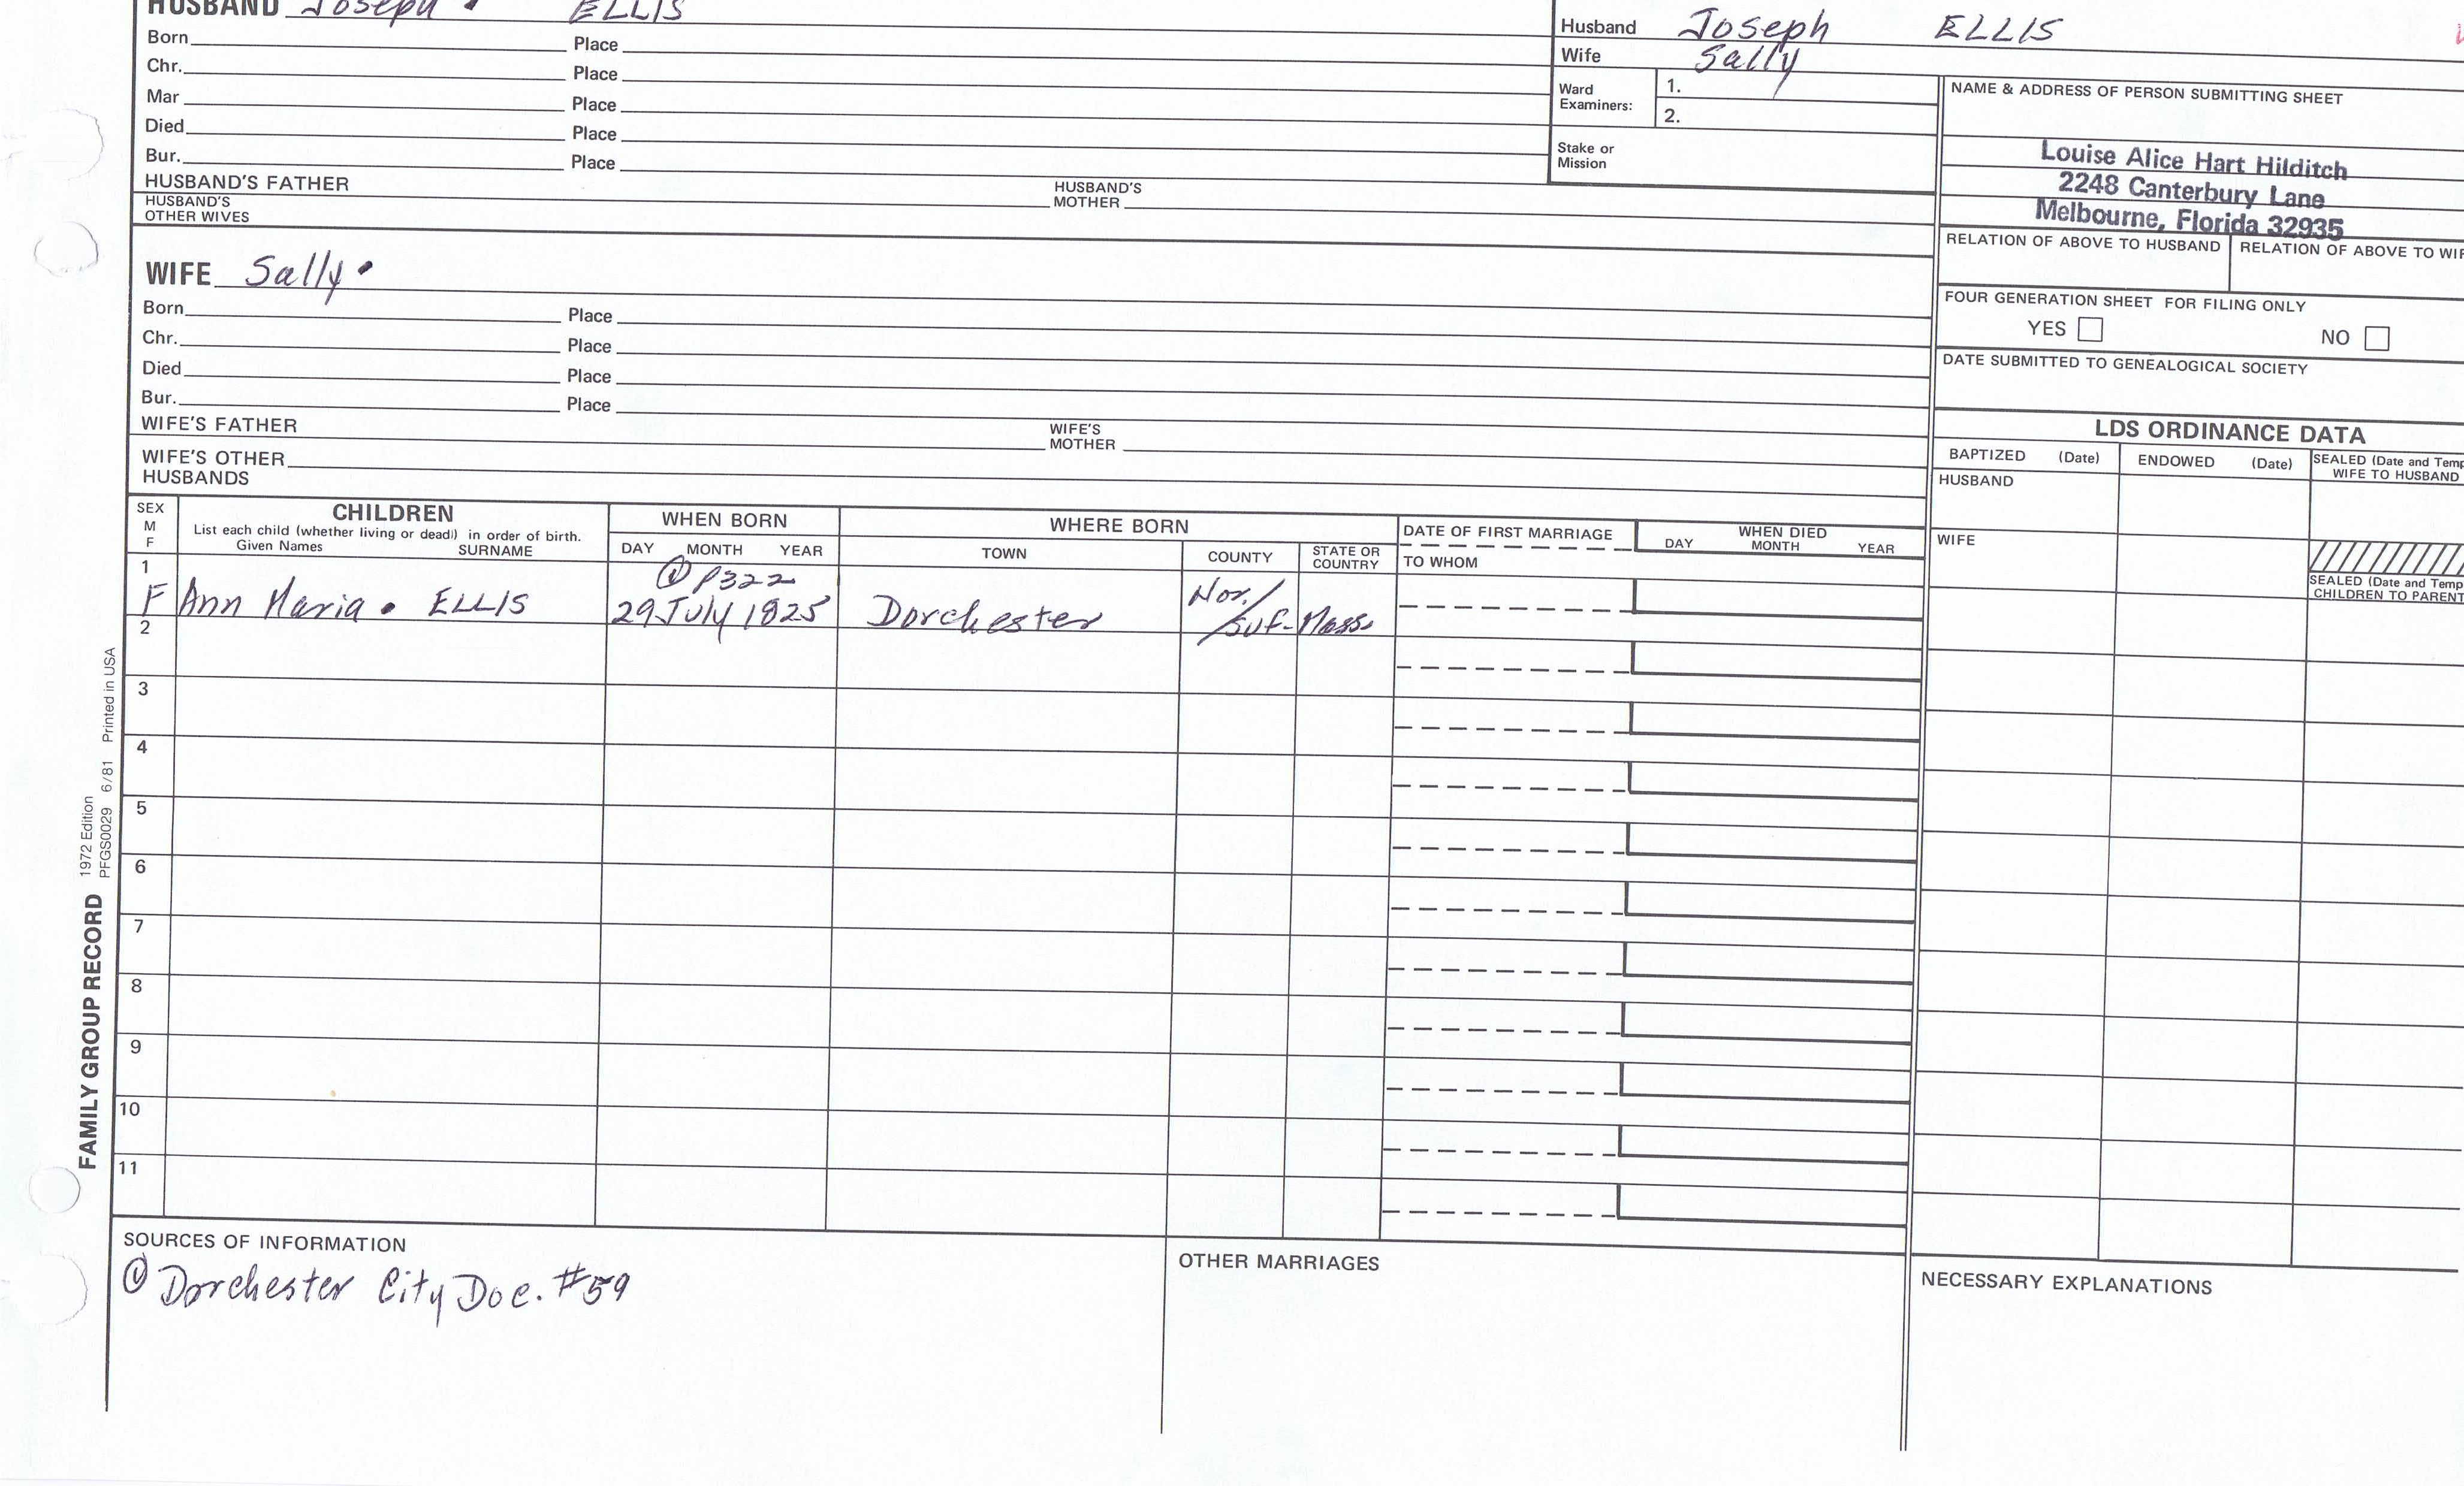 HUSBAND Joseph ELLIS
Born Place
Chr. Place
Mar Place
Died Place
Bur. Place
HUSBAND'S FATHER HUSBAND'S MOTHER
HUSBAND'S OTHER WIVES
Husband Joseph ELLIS
Wife Sally
Ward Examiners: 1.
2.
Stake or Mission
NAME & ADDRESS OF PERSON SUBMITTING SHEET
Louise Alice Hart Hilditch
2248 Canterbury Lane
Melbourne, Florida 32935
RELATION OF ABOVE TO HUSBAND RELATION OF ABOVE TO WIF
FOUR GENERATION SHEET FOR FILING ONLY
YES NO
DATE SUBMITTED TO GENEALOGICAL SOCIETY
WIFE Sally
Born Place
Chr. Place
Died Place
Bur. Place
WIFE'S FATHER WIFE'S MOTHER
WIFE'S OTHER HUSBANDS
LDS ORDINANCE DATA
BAPTIZED (Date) ENDOWED (Date) SEALED (Date and Temp
WIFE TO HUSBAND
HUSBAND
WIFE
SEALED (Date and Temp
CHILDREN TO PARENT
SEX M F
CHILDREN
List each child (whether living or dead) in order of birth.
Given Names SURNAME
WHEN BORN
DAY MONTH YEAR
WHERE BORN
TOWN COUNTY STATE OR COUNTRY
DATE OF FIRST MARRIAGE
TO WHOM
WHEN DIED
DAY MONTH YEAR
1 ① P322
F Ann Maria ELLIS 29 July 1825 Dorchester Nor./Suf. Mass.
2
3
4
5
6
7
8
9
10
11
SOURCES OF INFORMATION
① Dorchester City Doc. #59
OTHER MARRIAGES
NECESSARY EXPLANATIONS
FAMILY GROUP RECORD
1972 Edition
PFGS0029 6/81 Printed in USA